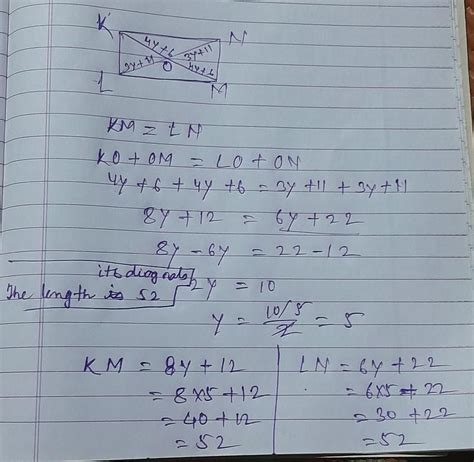 K N
4y+6 3y+11
O
3y+11 4y+6
L M
KM = LN
KO + OM = LO + ON
4y + 6 + 4y + 6 = 3y + 11 + 3y + 11
8y + 12 = 6y + 22
8y - 6y = 22 - 12
its diagonals
The length is 52
2y = 10
y = 10/2 = 5
5
KM = 8y + 12
= 8x5 + 12
= 40 + 12
= 52
LN = 6y + 22
= 6x5 + 22
= 30 + 22
= 52